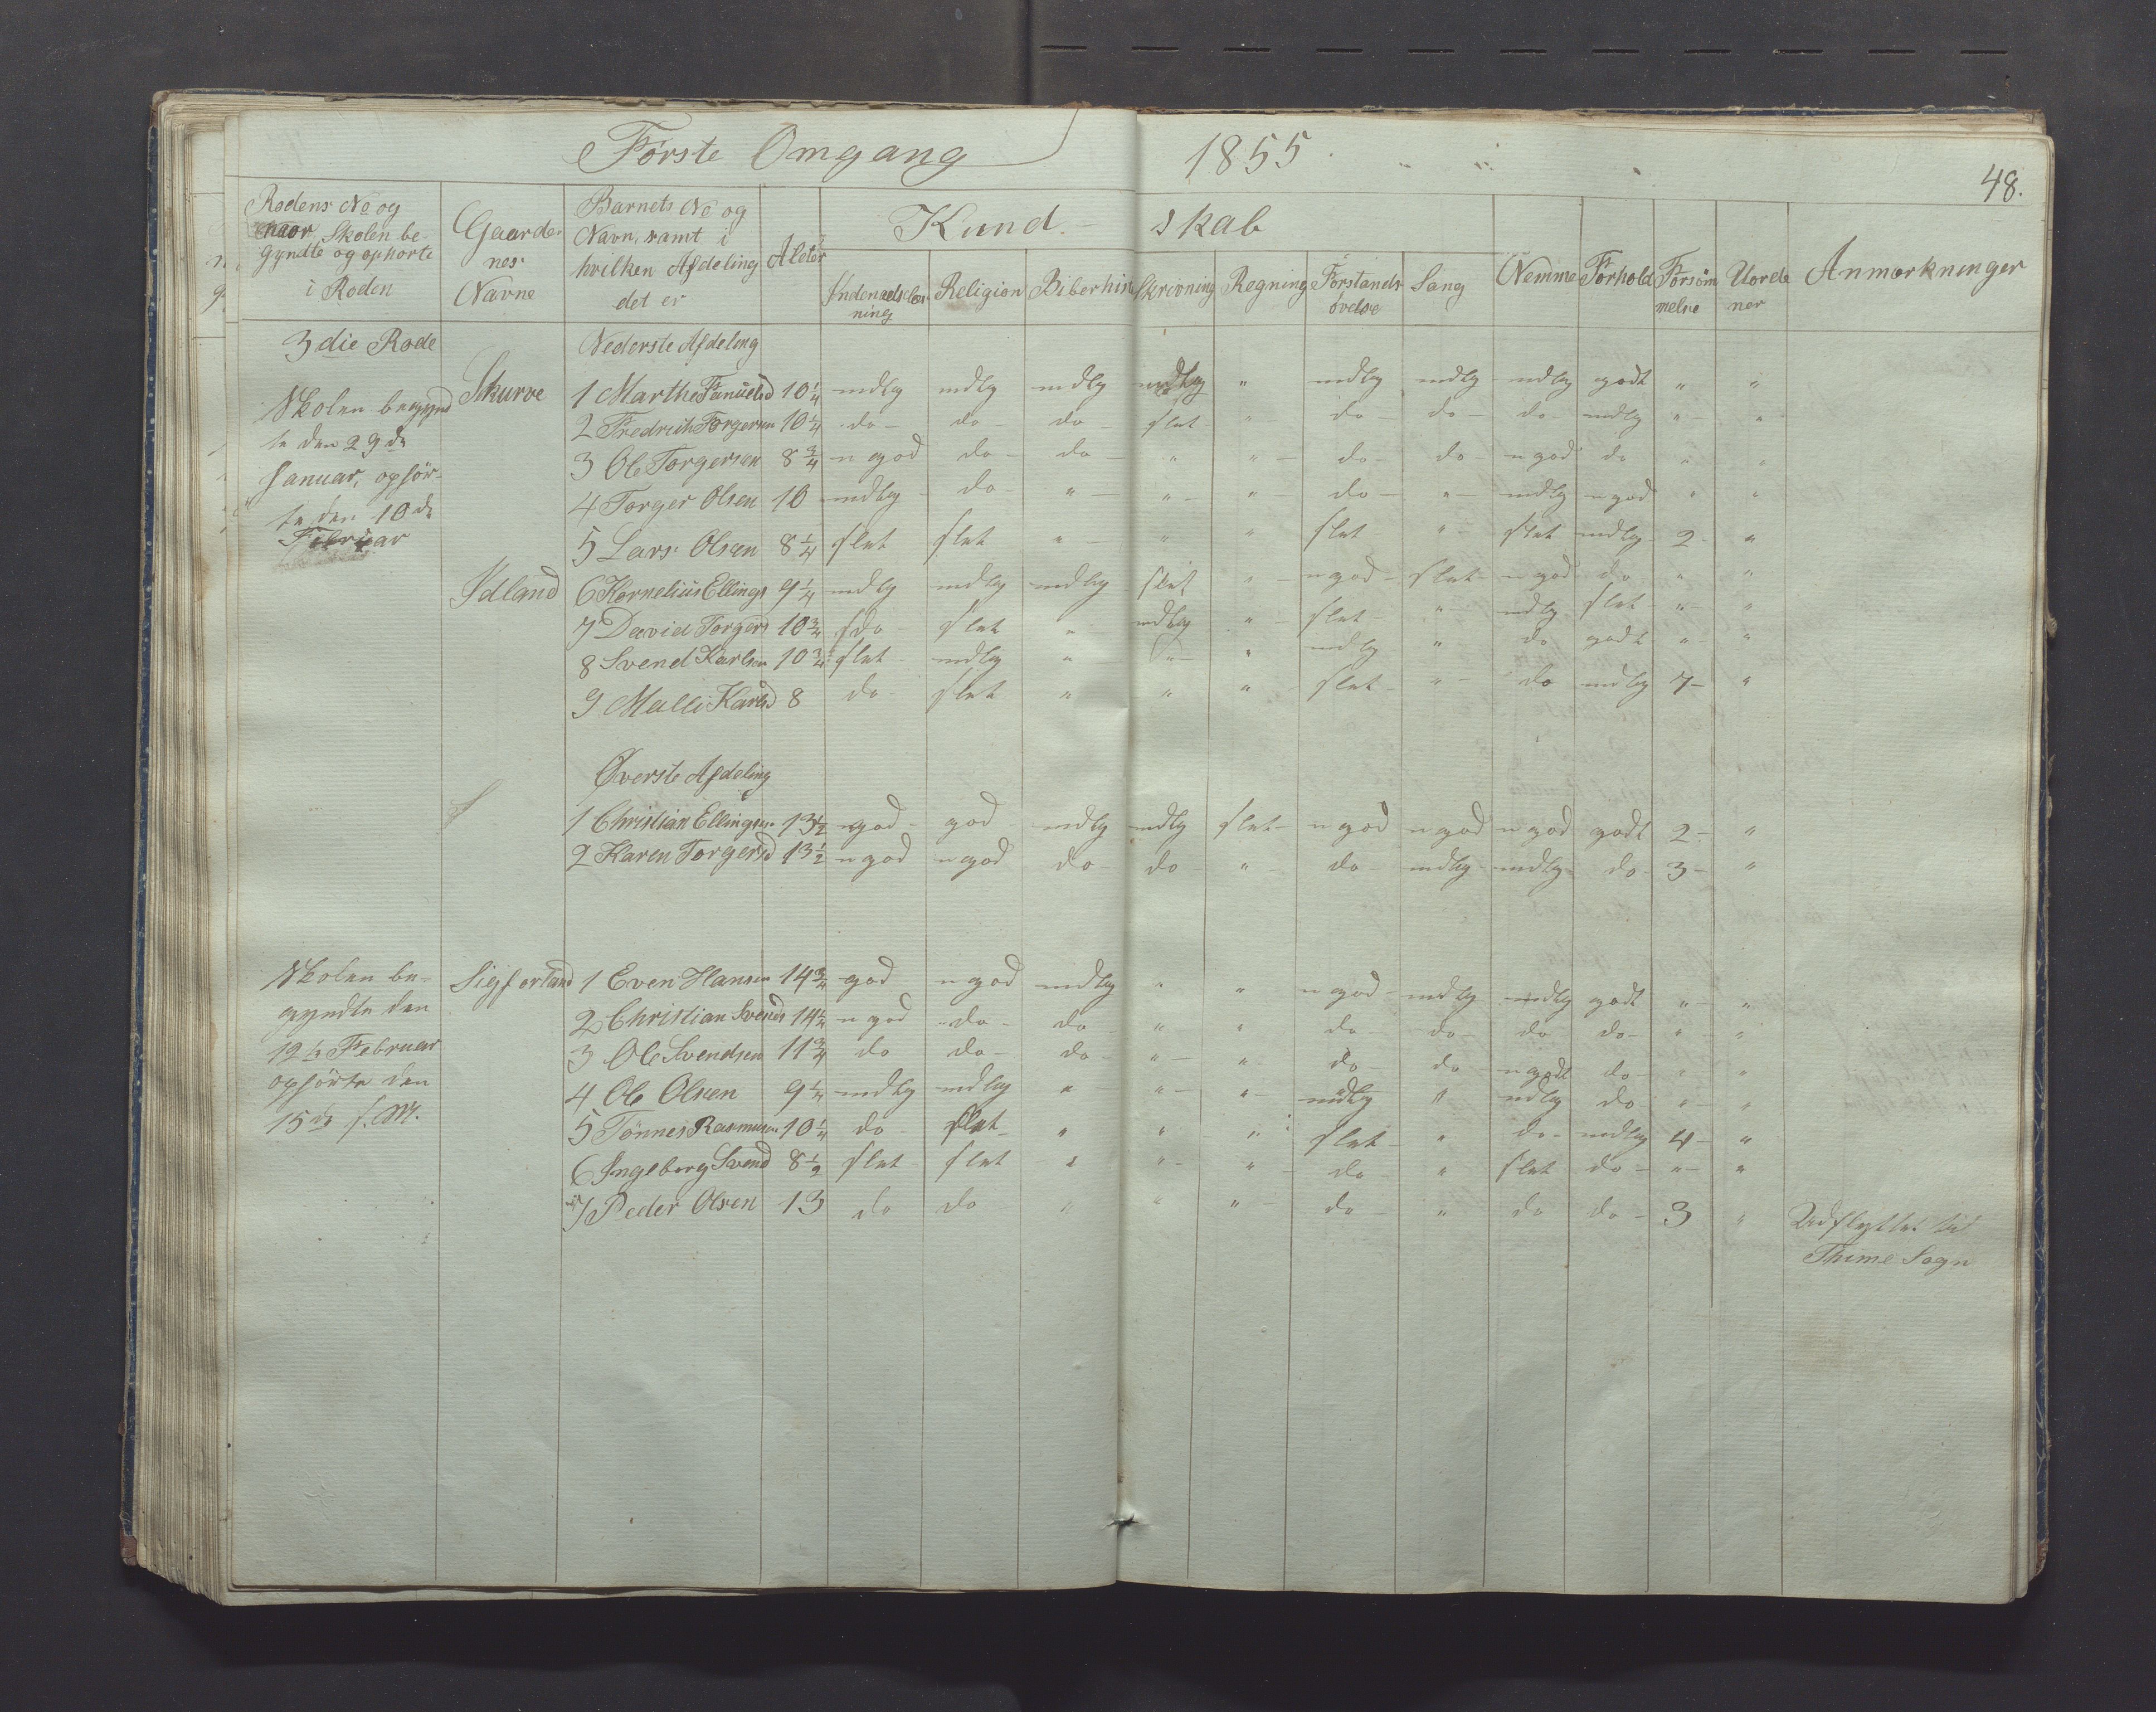 Første Omgang 1855
48.
Rodens No og naar Skolen begyndte og ophørte i Roden | Gaardenes Navne | Barnets No og Navn, samt i hvilken Afdeling det er | Alder | Kundskab | Nemme | Forhold | Forsømmelse | Uordener | Anmærkninger
Indenadslæsning | Religion | Biberhist | Skrivning | Regning | Forstandsøvelse | Sang
3die Rode | Nederste Afdeling
Skolen begynd
te den 29de
Januar, ophør-
te den 10de
Februar
Skurve | 1 Marthe Tanuelsd | 10 1/4 | mdlg | mdlg | mdlg | mdlg | " | mdlg | mdlg | mdlg | godt | " | "
2 Fredrich Torgersen | 10 1/4 | do | do | do | slet | " | do | do | do | mdlg | " | "
3 Ole Torgersen | 8 3/4 | n god | do | do | " | " | do | do | n god | do | " | "
4 Torger Olsen | 10 | mdlg | do | " | " | " | do | " | mdlg | n god | " | "
5 Lars Olsen | 8 1/4 | slet | slet | " | " | " | slet | " | slet | mdlg | 2 | "
Idland | 6 Kornelius Ellings | 9 1/4 | mdlg | mdlg | mdlg | slet | " | n god | slet | n god | do | " | "
7 David Torgers | 10 3/4 | do | slet | " | mdlg | " | slet | " | mdlg | slet | " | "
8 Svend Karlsen | 10 3/4 | slet | mdlg | " | " | " | mdlg | " | do | godt | " | "
9 Malli Karlsd | 8 | do | slet | " | " | " | slet | " | do | mdlg | 7 | "
Øverste Afdeling
1 Christian Ellingsen | 13 1/2 | n god | god | mdlg | mdlg | slet | n god | n god | n god | godt | 2 | "
2 Karen Torgersd | 13 1/2 | n god | n god | do | do | " | do | mdlg | mdlg | do | 3 | "
Skolen be-
gyndte den
12te Februar
ophørte den
15de s. M.
Sigferland | 1 Even Hansen | 14 3/4 | god | n god | mdlg | " | " | n god | mdlg | mdlg | godt | " | "
2 Christian Svends | 14 1/4 | n god | do | do | " | " | do | do | do | do | " | "
3 Ole Svendsen | 11 3/4 | do | do | do | " | " | do | do | n godt | do | " | "
4 Ole Olsen | 9 1/4 | mdlg | mdlg | " | " | " | mdlg | " | mdlg | do | " | "
5 Tønnes Rasmusen | 10 1/4 | do | slet | " | " | " | slet | " | do | mdlg | 4 | "
6 Ingeborg Svend | 8 1/2 | slet | slet | " | " | " | do | " | slet | do | " | "
7 Peder Olsen | 13 | do | do | " | " | " | do | " | do | do | 3 | " | Udflyttet til
Thime Sogn